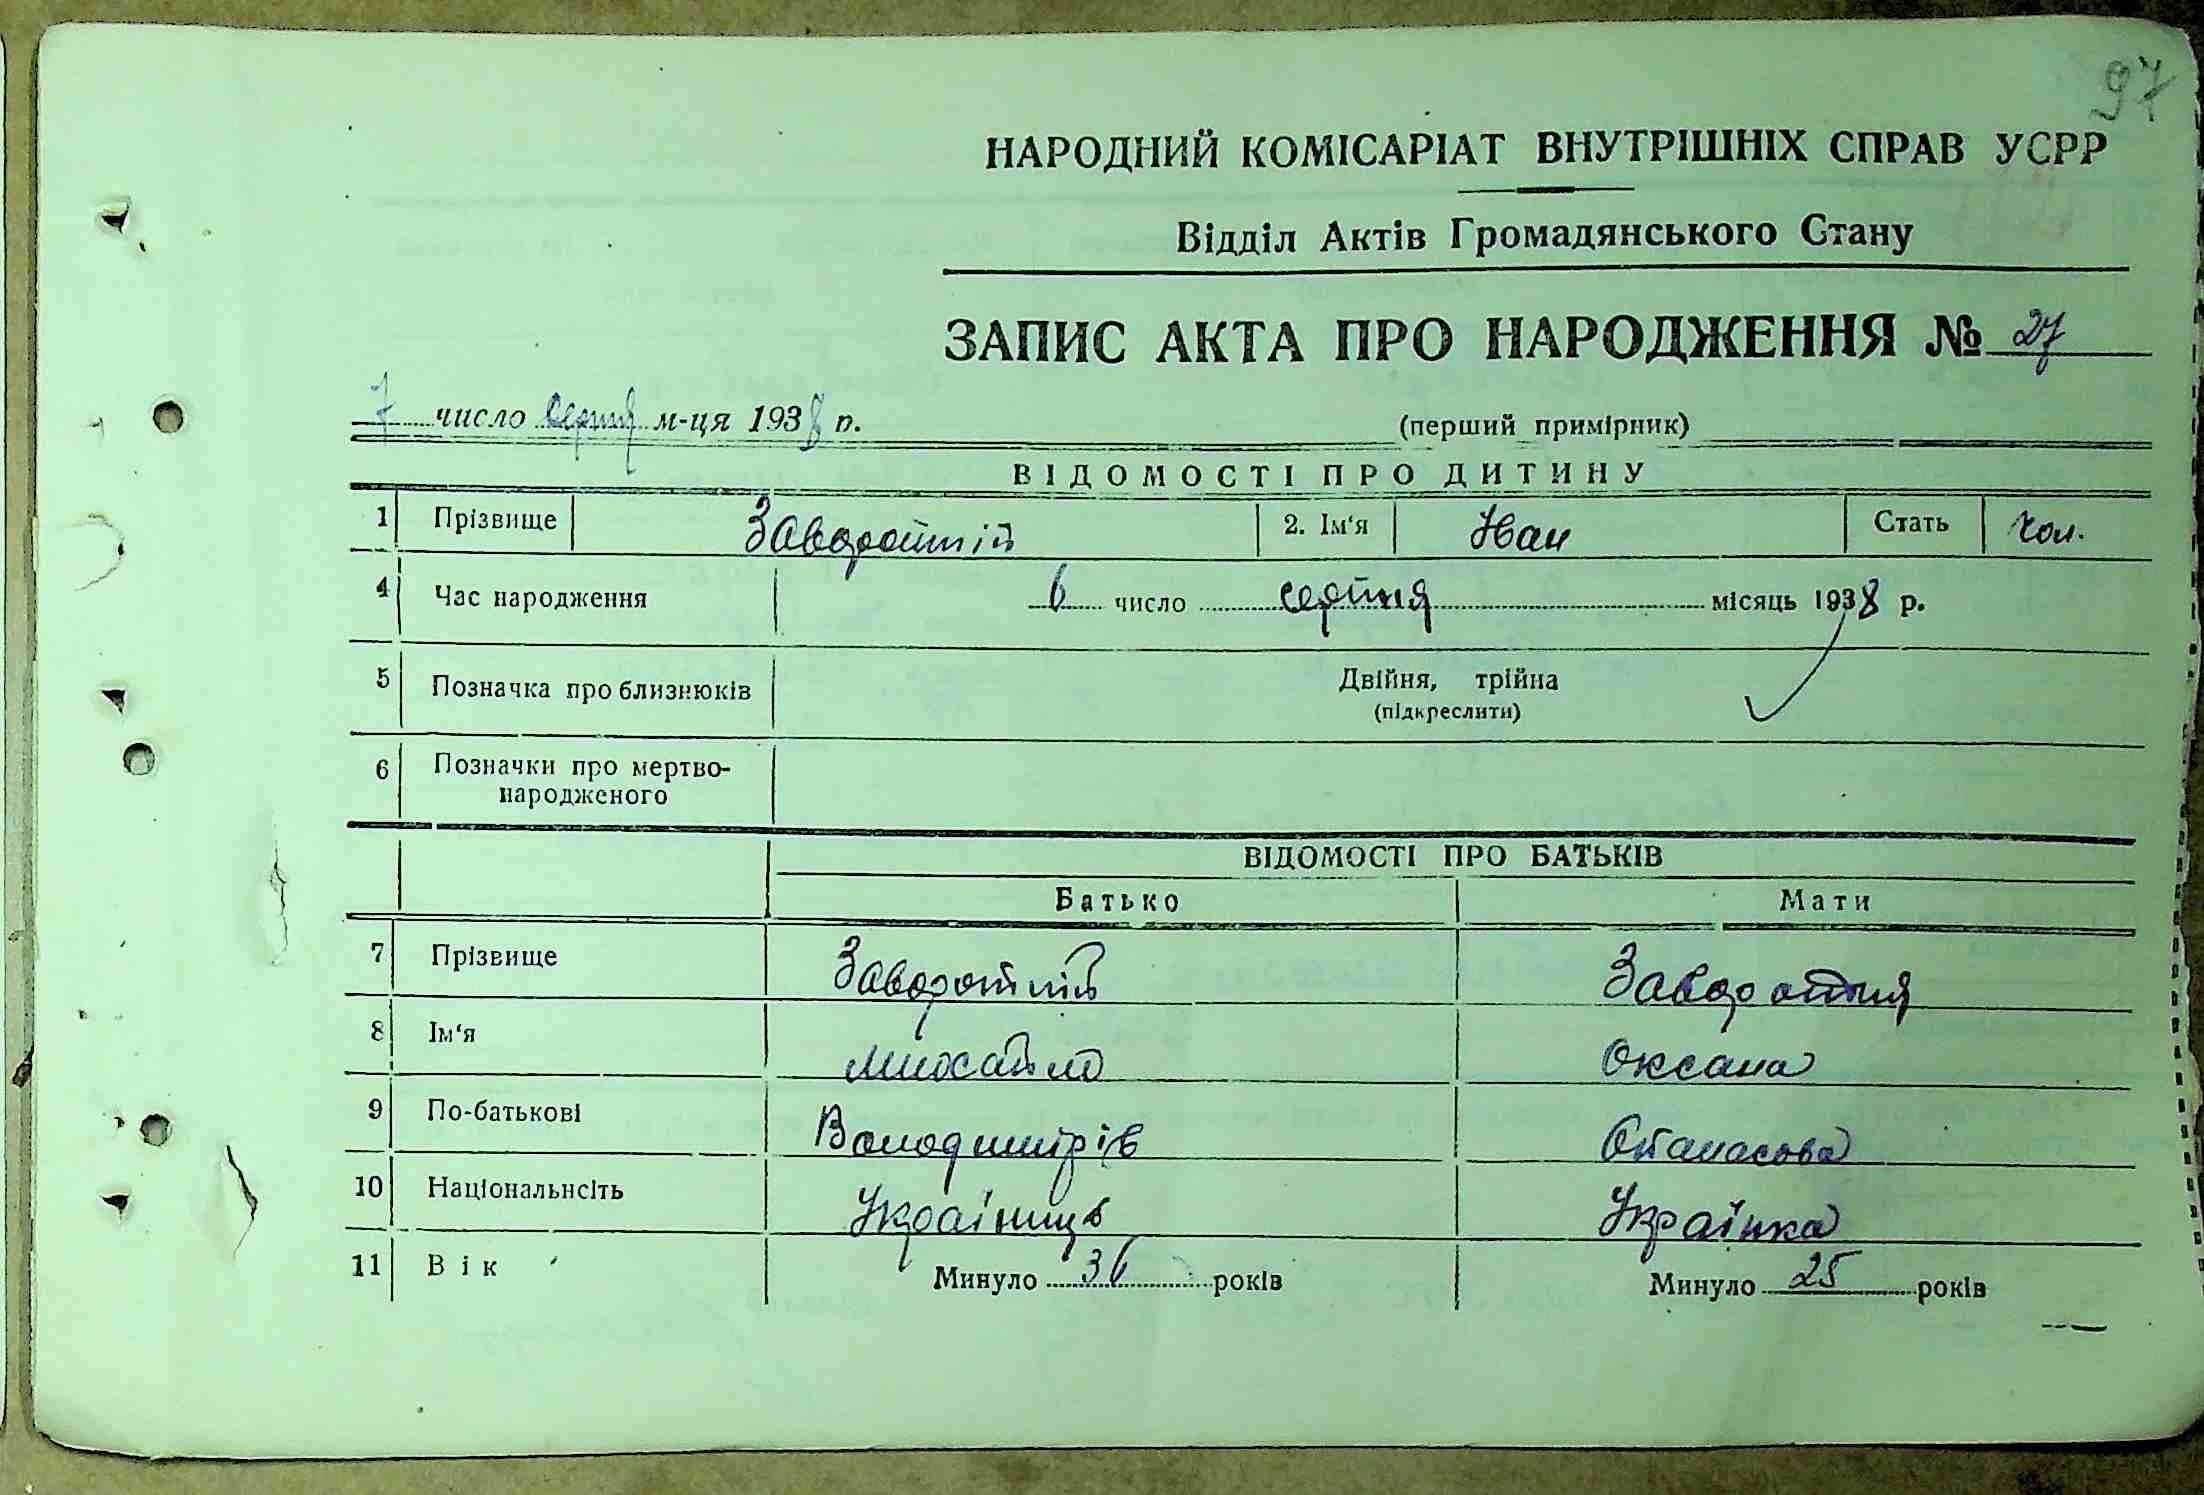 97
НАРОДНИЙ КОМІСАРІАТ ВНУТРІШНІХ СПРАВ УСРР
Відділ Актів Громадянського Стану
ЗАПИС АКТА ПРО НАРОДЖЕННЯ № 27
7 число серпня м-ця 1938 р. (перший примірник)
ВІДОМОСТІ ПРО ДИТИНУ
1 Прізвище Заворотній 2. Ім'я Иван Стать чол.
4 Час народження 6 число серпня місяць 1938 р.
5 Позначка про близнюків Двійня, трійна
(підкреслити)
6 Позначки про мертво-
народженого
ВІДОМОСТІ ПРО БАТЬКІВ
Батько Мати
7 Прізвище Заворотній Заворотня
8 Ім'я Михайло Оксана
9 По-батькові Володимирів Опанасова
10 Національнсіть Українець Українка
11 Вік Минуло 36 років Минуло 25 років